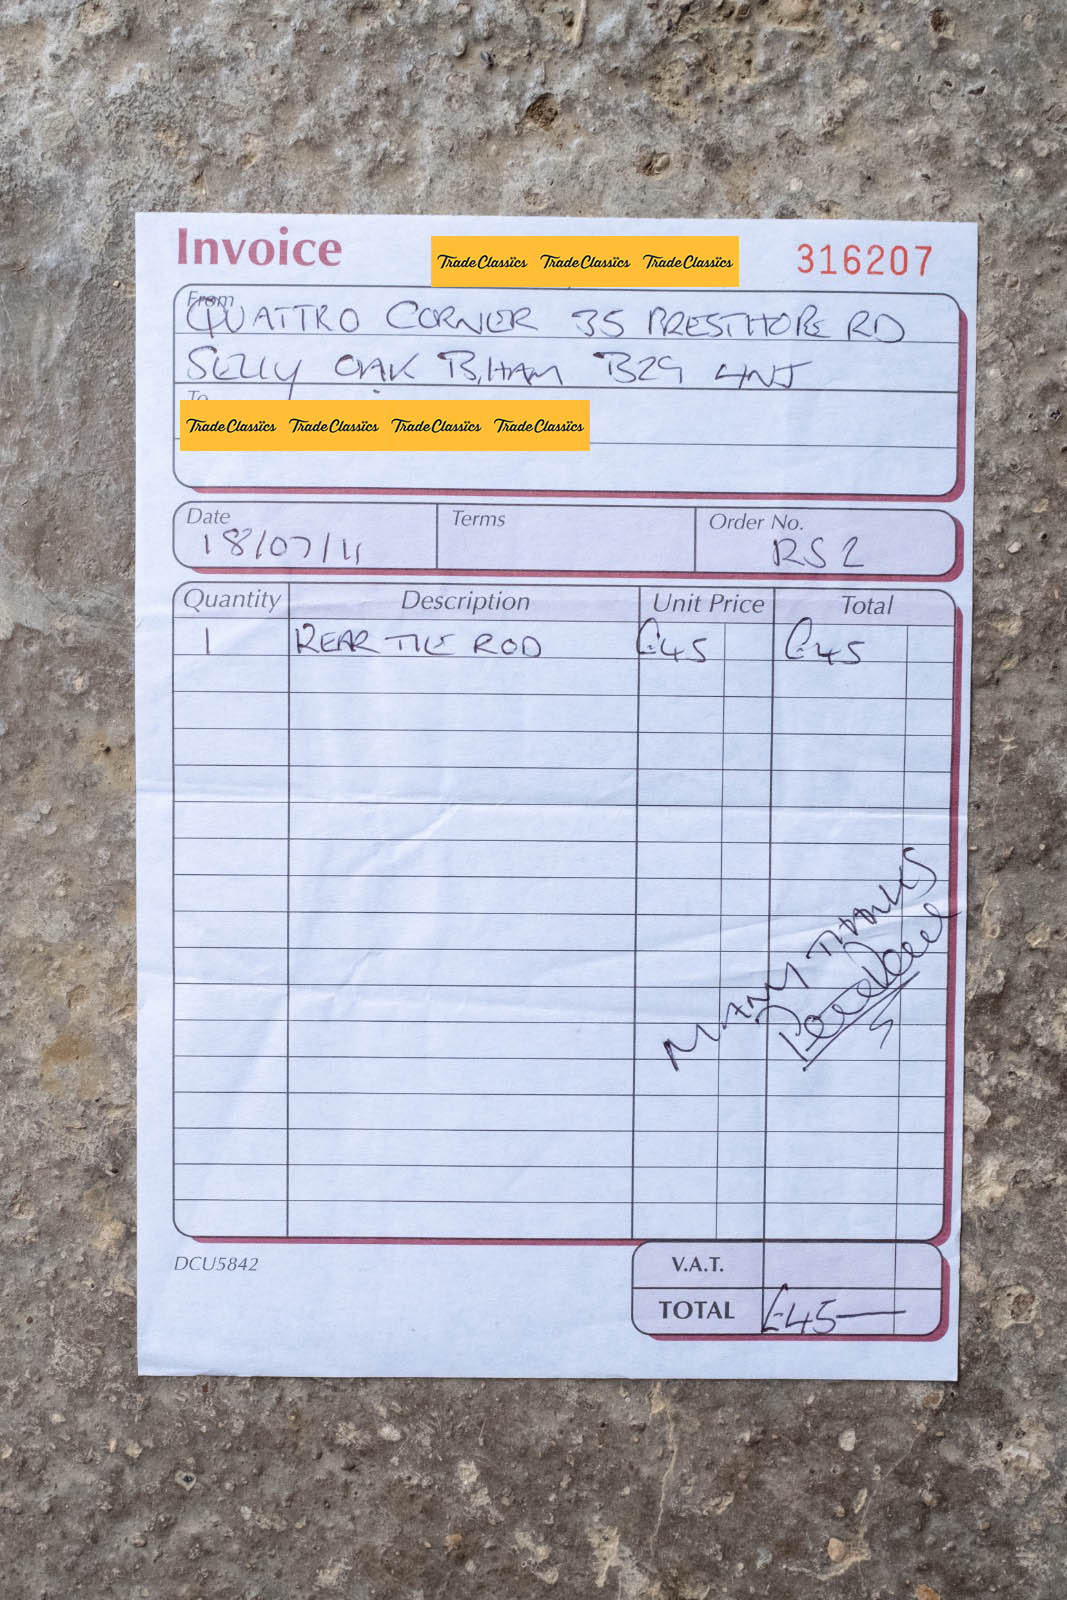 Invoice
TradeClassics TradeClassics TradeClassics
316207
From
QUATTRO CORNER 35 PRESTHOPE RD
SELLY OAK B,HAM B29 4NJ
To
TradeClassics TradeClassics TradeClassics TradeClassics
Date Terms Order No.
18/07/11 RS2
Quantity Description Unit Price Total
1 REAR TIE ROD £45 £45
MANY THANKS
DCU5842
V.A.T.
TOTAL £45—